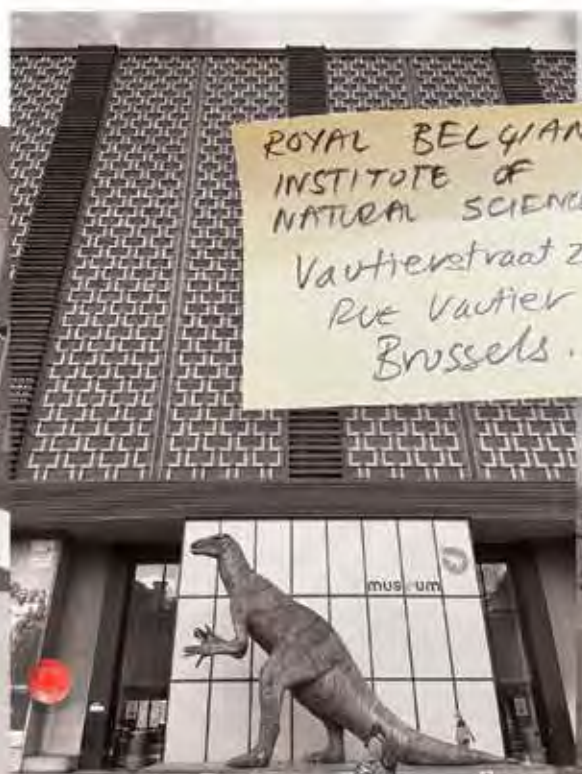 ROYAL BELGIAN
INSTITUTE OF
NATURAL SCIENCE
Vautierstraat 2
Rue Vautier
Brussels.
museum